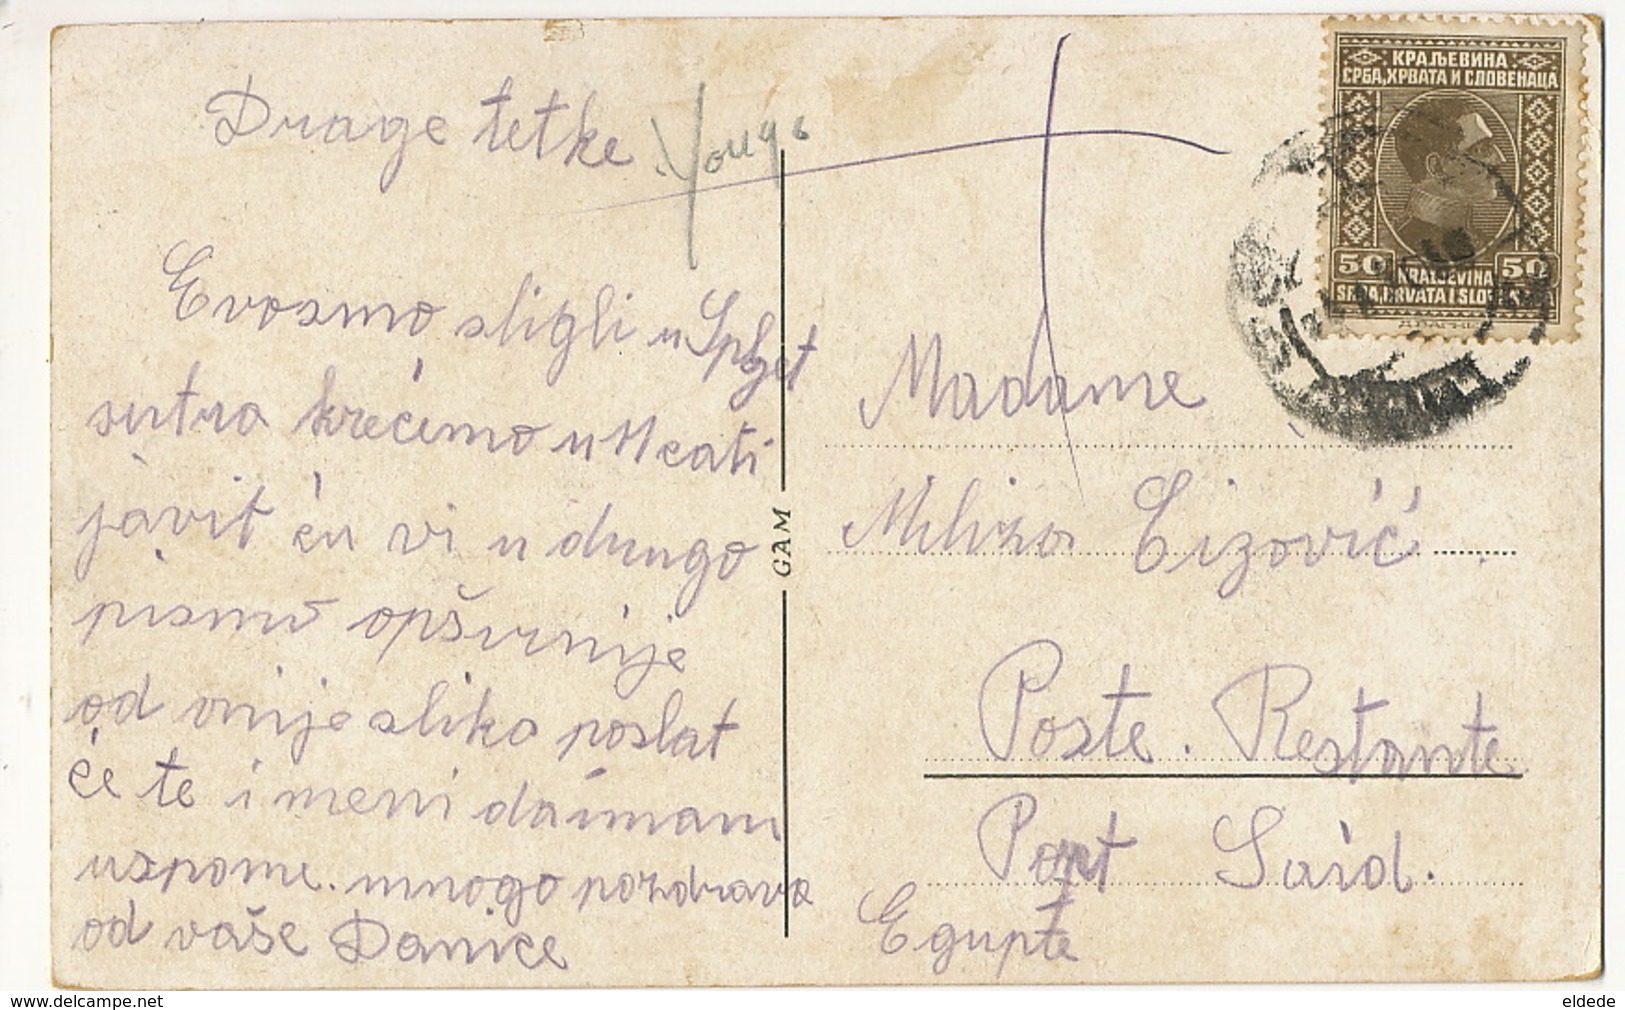 Drage tetke
Evosmo sligli u Spljet
sutra krećemo u Kcati
javit ću vi u drugo
pismo opširnije
od ovije slika poslat
će te i meni da imam
uspome. mnogo pozdrava
od vaše Danice
Youg.
GAM
КРАЉЕВИНА
СРБА, ХРВАТА И СЛОВЕНАЦА
50 50
KRALJEVINA
SRBA, HRVATA I SLOVEN
Madame
Miliza Cizović
Poste. Restante
Port Said.
Egupte
www.delcampe.net
eldede